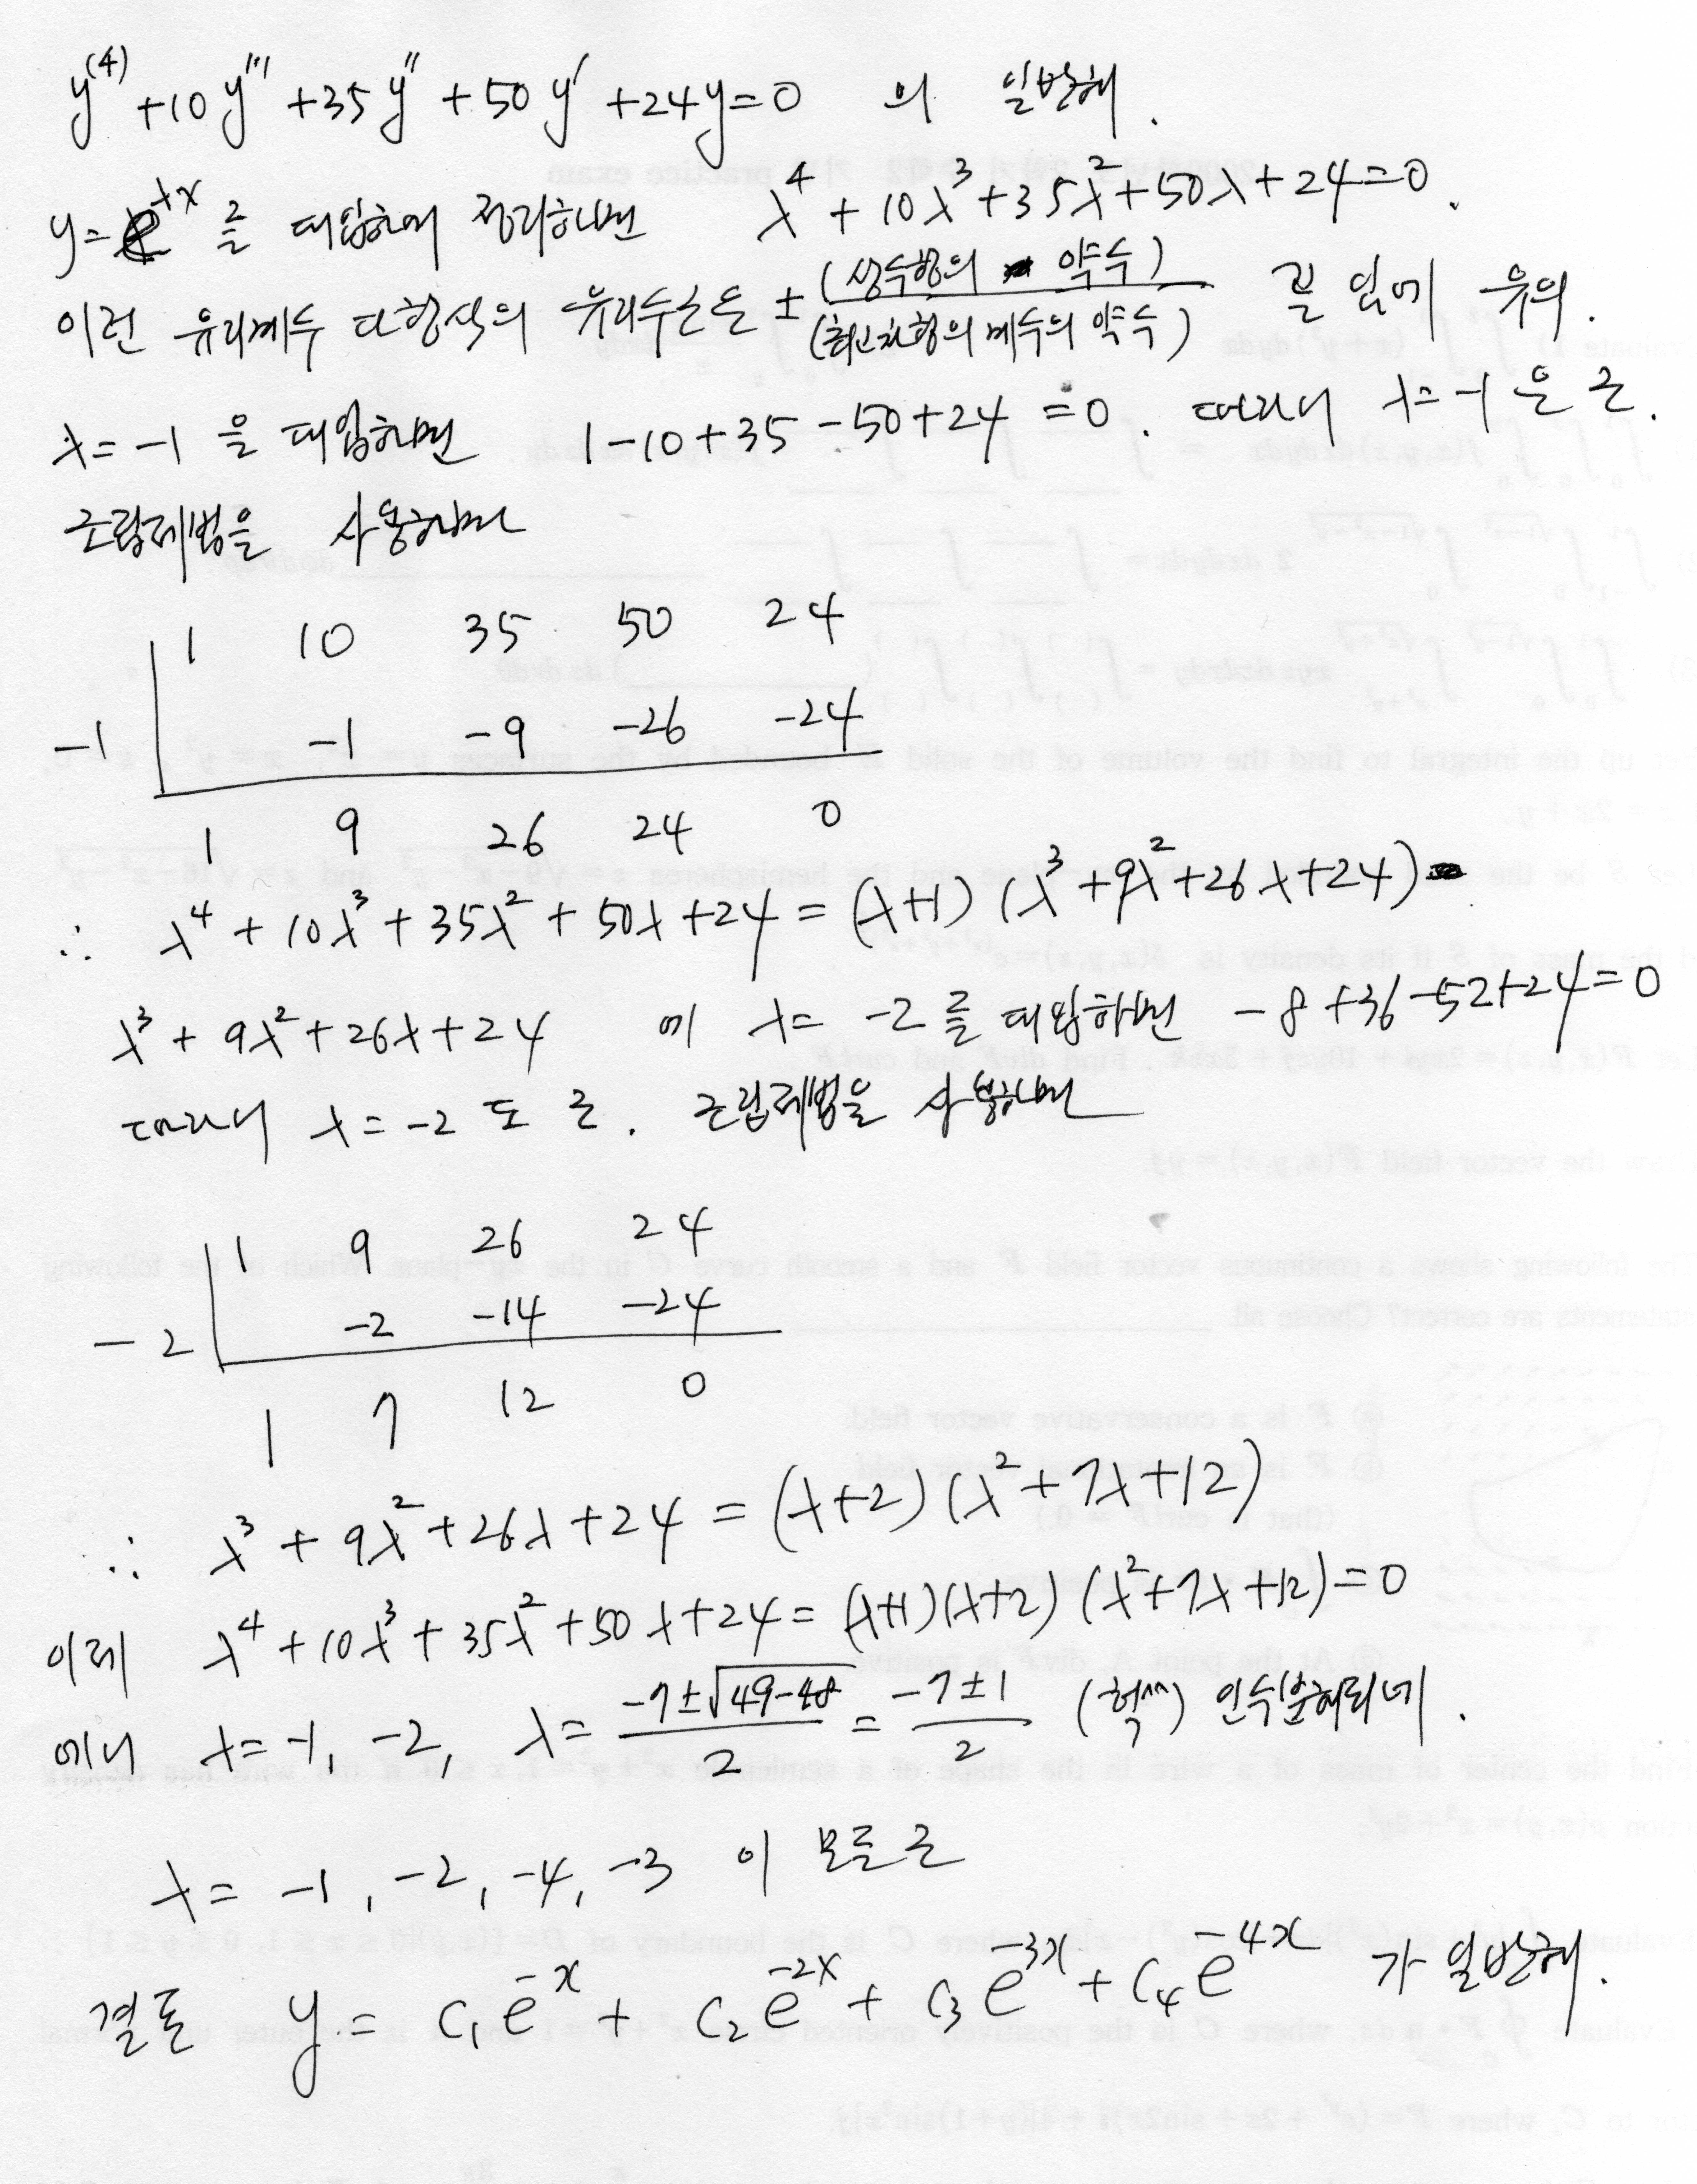 y⁽⁴⁾+10y'''+35y''+50y'+24y=0 의 일반해.
y=e^λx 를 대입하여 정리하면 λ⁴+10λ³+35λ²+50λ+24=0.
이런 유리계수 다항식의 유리수근은 ± (상수항의 약수)/(최고차항의 계수의 약수) 꼴 임에 유의.
λ=-1 을 대입하면 1-10+35-50+24=0. 따라서 λ=-1 은 근.
조립제법을 사용하면
1 10 35 50 24
-1 -1 -9 -26 -24
1 9 26 24 0
∴ λ⁴+10λ³+35λ²+50λ+24=(λ+1)(λ³+9λ²+26λ+24)
λ³+9λ²+26λ+24 에 λ=-2를 대입하면 -8+36-52+24=0
따라서 λ=-2 도 근. 조립제법을 사용하면
1 9 26 24
-2 -2 -14 -24
1 7 12 0
∴ λ³+9λ²+26λ+24=(λ+2)(λ²+7λ+12)
이제 λ⁴+10λ³+35λ²+50λ+24=(λ+1)(λ+2)(λ²+7λ+12)=0
에서 λ=-1, -2, λ=(-7±√(49-48))/2=(-7±1)/2 (헉^^) 인수분해되네.
λ=-1, -2, -4, -3 이 모든 근
결론 y=c₁e^-x+c₂e^-2x+c₃e^-3x+c₄e^-4x 가 일반해.